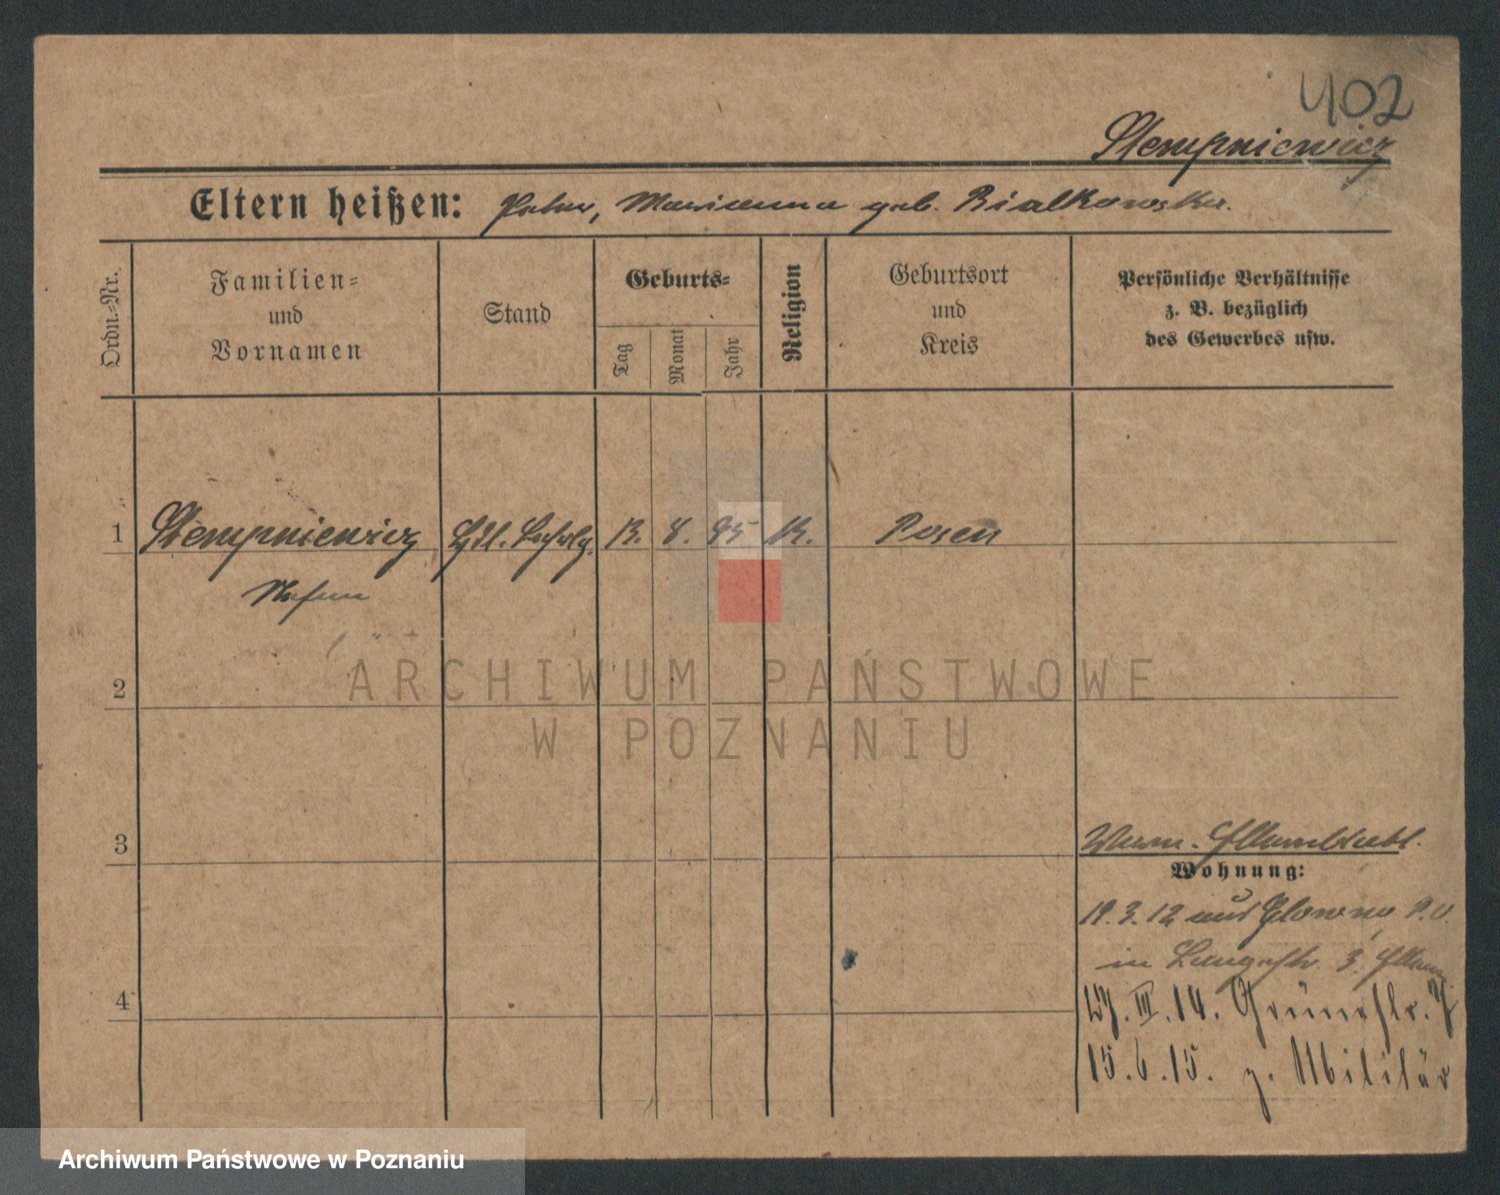 402
Stempniewicz
Eltern heißen: Peter, Marianna geb. Bialkowska.
Ordn.=Nr.
Familien=
und
Vornamen
Stand
Geburts=
Tag
Monat
Jahr
Religion
Geburtsort
und
Kreis
Persönliche Verhältnisse
z. B. bezüglich
des Gewerbes usw.
1 Stempniewicz 13. 8. 95 K. Posen
Stefan
ARCHIWUM PAŃSTWOWE
2
W POZNANIU
3
Wohnung:
19.3.12 aus Glowno P.O.
in Langestr. 3.
4
III.14. Grünestr. 7
15.6.15. z. Militär
Archiwum Państwowe w Poznaniu